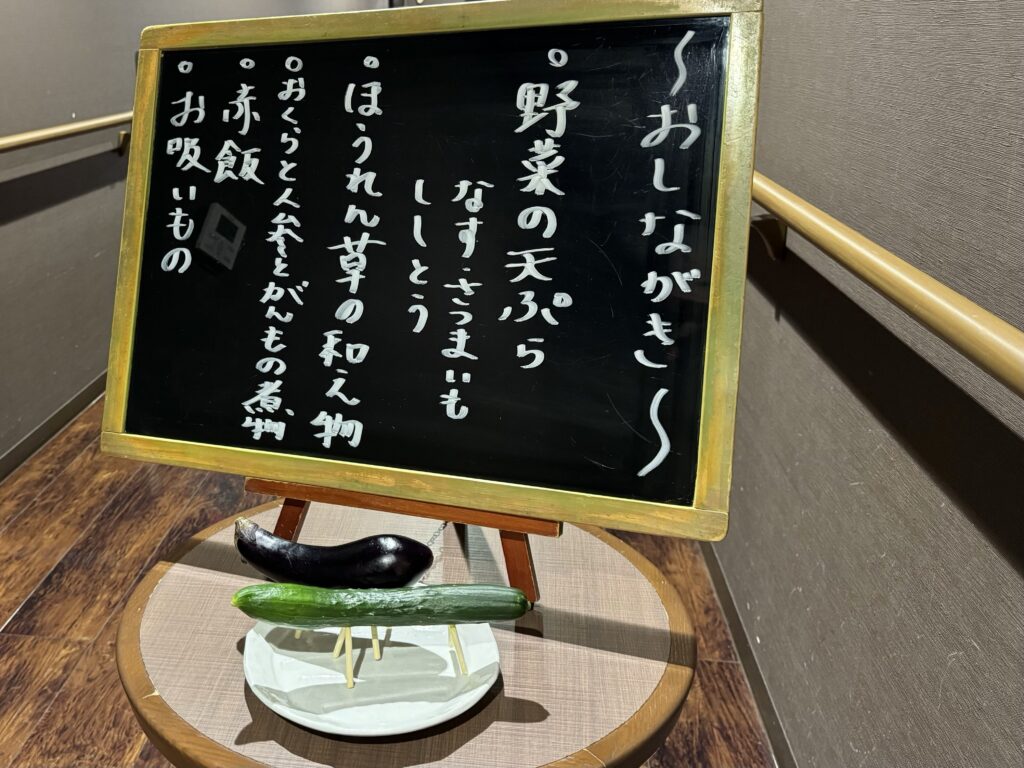 〜おしながき〜
○野菜の天ぷら
なす・さつまいも
ししとう
○ほうれん草の和え物
○おくらと人参とがんもの煮物
○赤飯
○お吸いもの